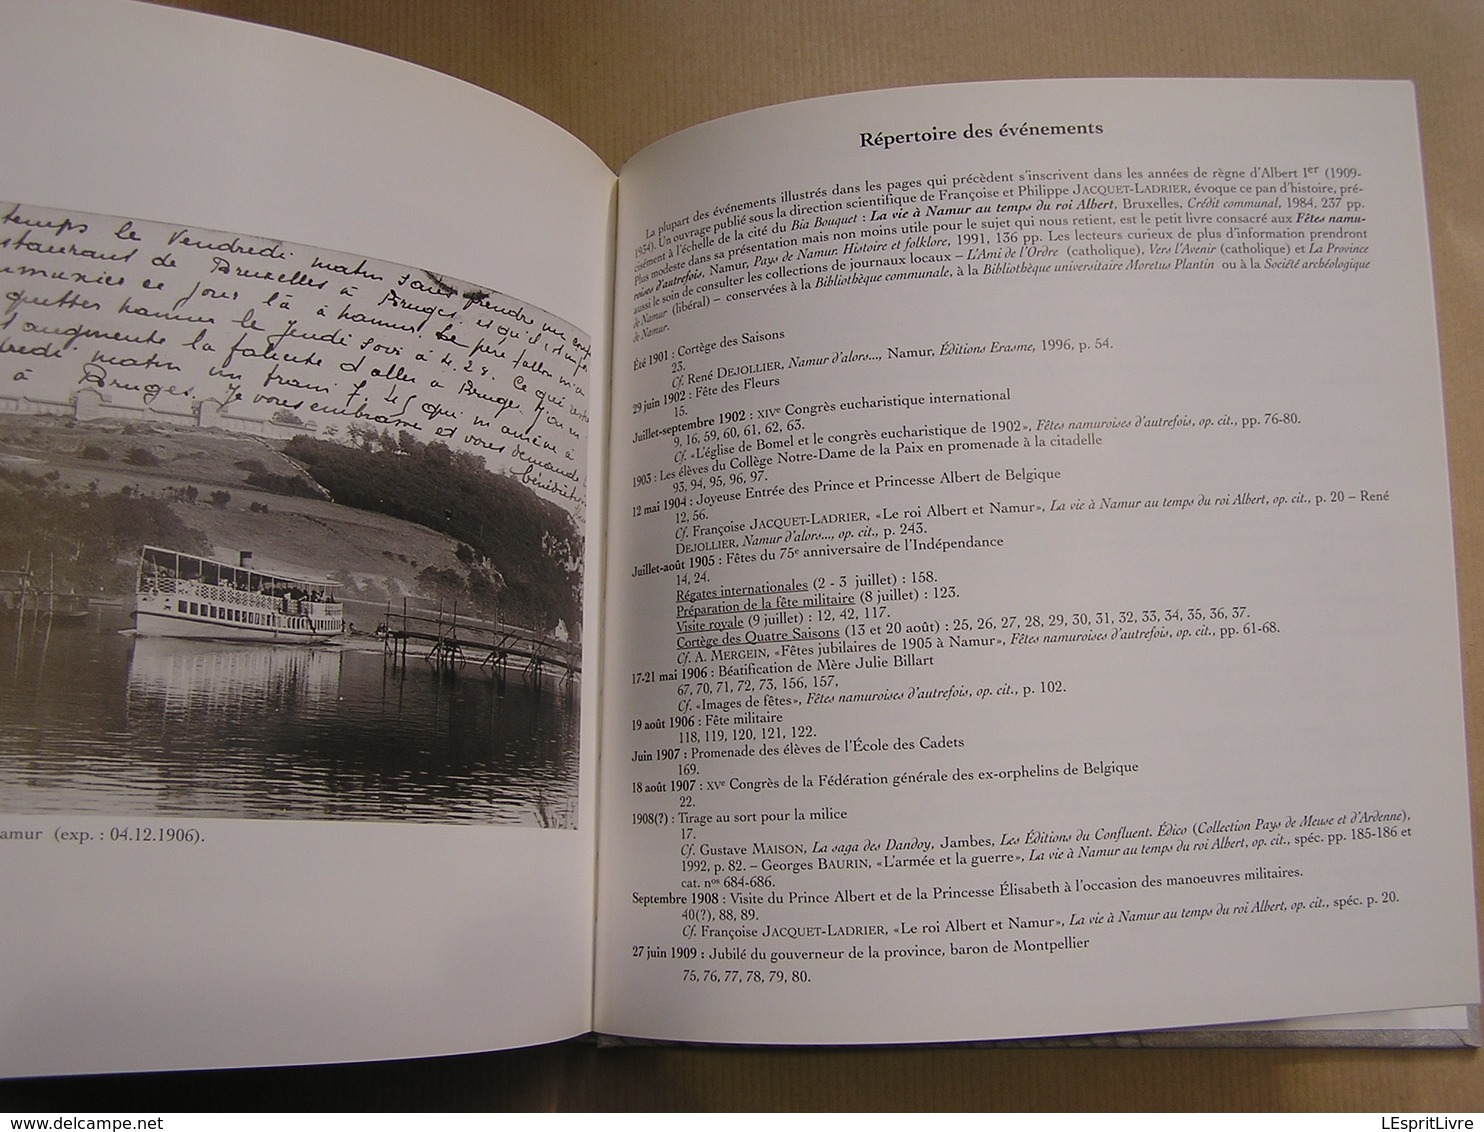 temps le Vendredi matin sans prendre un
restaurant de Bruxelles à Bruges. et qu'il
ce jour là à Namur. Le père
quitter Namur le Jeudi soir à 4.28. Ce qui
augmente la d'aller à Bruges.
matin un train 7.45 qui m'amène à
à Bruges. Je vous embrasse et vous demande
bénédiction
amur (exp. : 04.12.1906).
Répertoire des événements
La plupart des événements illustrés dans les pages qui précèdent s'inscrivent dans les années de règne d'Albert Ier (1909-
1934). Un ouvrage publié sous la direction scientifique de Françoise et Philippe JACQUET-LADRIER, évoque ce pan d'histoire, pré-
cisément à l'échelle de la cité du Bia Bouquet : La vie à Namur au temps du roi Albert, Bruxelles, Crédit communal, 1984, 237 pp.
Plus modeste dans sa présentation mais non moins utile pour le sujet qui nous retient, est le petit livre consacré aux Fêtes namu-
roises d'autrefois, Namur, Pays de Namur. Histoire et folklore, 1991, 136 pp. Les lecteurs curieux de plus d'information prendront
aussi le soin de consulter les collections de journaux locaux – L'Ami de l'Ordre (catholique), Vers l'Avenir (catholique) et La Province
de Namur (libéral) – conservées à la Bibliothèque communale, à la Bibliothèque universitaire Moretus Plantin ou à la Société archéologique
de Namur.
Été 1901 : Cortège des Saisons
23.
Cf. René DEJOLLIER, Namur d'alors..., Namur, Éditions Erasme, 1996, p. 54.
29 juin 1902 : Fête des Fleurs
15.
Juillet-septembre 1902 : XIVe Congrès eucharistique international
9, 16, 59, 60, 61, 62, 63.
Cf. «L'église de Bomel et le congrès eucharistique de 1902», Fêtes namuroises d'autrefois, op. cit., pp. 76-80.
1903 : Les élèves du Collège Notre-Dame de la Paix en promenade à la citadelle
93, 94, 95, 96, 97.
12 mai 1904 : Joyeuse Entrée des Prince et Princesse Albert de Belgique
12, 56.
Cf. Françoise JACQUET-LADRIER, «Le roi Albert et Namur», La vie à Namur au temps du roi Albert, op. cit., p. 20 – René
DEJOLLIER, Namur d'alors..., op. cit., p. 243.
Juillet-août 1905 : Fêtes du 75e anniversaire de l'Indépendance
14, 24.
Régates internationales (2 - 3 juillet) : 158.
Préparation de la fête militaire (8 juillet) : 123.
Visite royale (9 juillet) : 12, 42, 117.
Cortège des Quatre Saisons (13 et 20 août) : 25, 26, 27, 28, 29, 30, 31, 32, 33, 34, 35, 36, 37.
Cf. A. MERGEIN, «Fêtes jubilaires de 1905 à Namur», Fêtes namuroises d'autrefois, op. cit., pp. 61-68.
17-21 mai 1906 : Béatification de Mère Julie Billart
67, 70, 71, 72, 73, 156, 157,
Cf. «Images de fêtes», Fêtes namuroises d'autrefois, op. cit., p. 102.
19 août 1906 : Fête militaire
118, 119, 120, 121, 122.
Juin 1907 : Promenade des élèves de l'École des Cadets
169.
18 août 1907 : XVe Congrès de la Fédération générale des ex-orphelins de Belgique
22.
1908(?) : Tirage au sort pour la milice
17.
Cf. Gustave MAISON, La saga des Dandoy, Jambes, Les Éditions du Confluent. Édico (Collection Pays de Meuse et d'Ardenne),
1992, p. 82. – Georges BAURIN, «L'armée et la guerre», La vie à Namur au temps du roi Albert, op. cit., spéc. pp. 185-186 et
cat. nos 684-686.
Septembre 1908 : Visite du Prince Albert et de la Princesse Élisabeth à l'occasion des manoeuvres militaires.
40(?), 88, 89.
Cf. Françoise JACQUET-LADRIER, «Le roi Albert et Namur», La vie à Namur au temps du roi Albert, op. cit., spéc. p. 20.
27 juin 1909 : Jubilé du gouverneur de la province, baron de Montpellier
75, 76, 77, 78, 79, 80.
LEspritLivre